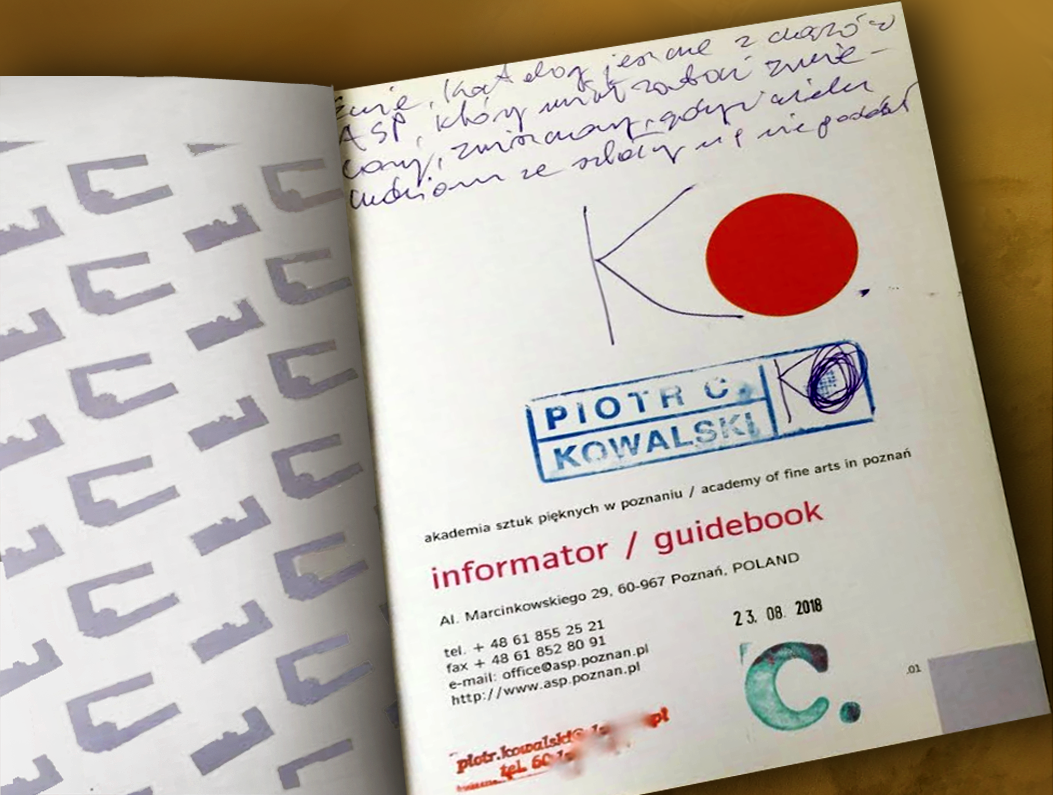 Ewie, Katalog jeszcze z czasów
ASP, który miał zostać zmie-
lony, zniszczony, gdyż wielu
ludziom ze szkoły się nie podobał
K
PIOTR C.
KOWALSKI
K
akademia sztuk pięknych w poznaniu / academy of fine arts in poznań
informator / guidebook
Al. Marcinkowskiego 29, 60-967 Poznań, POLAND
tel. + 48 61 855 25 21
fax + 48 61 852 80 91
e-mail: office@asp.poznan.pl
http://www.asp.poznan.pl
23. 08. 2018
C.
.01
piotr.kowalski@
tel. 60